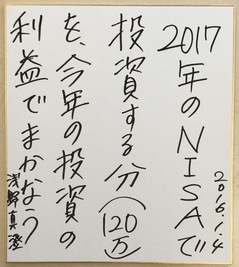 2017年のNISAで
投資する分(120万)
を、今年の投資の
利益でまかなう
2016.1.4
浅野真澄